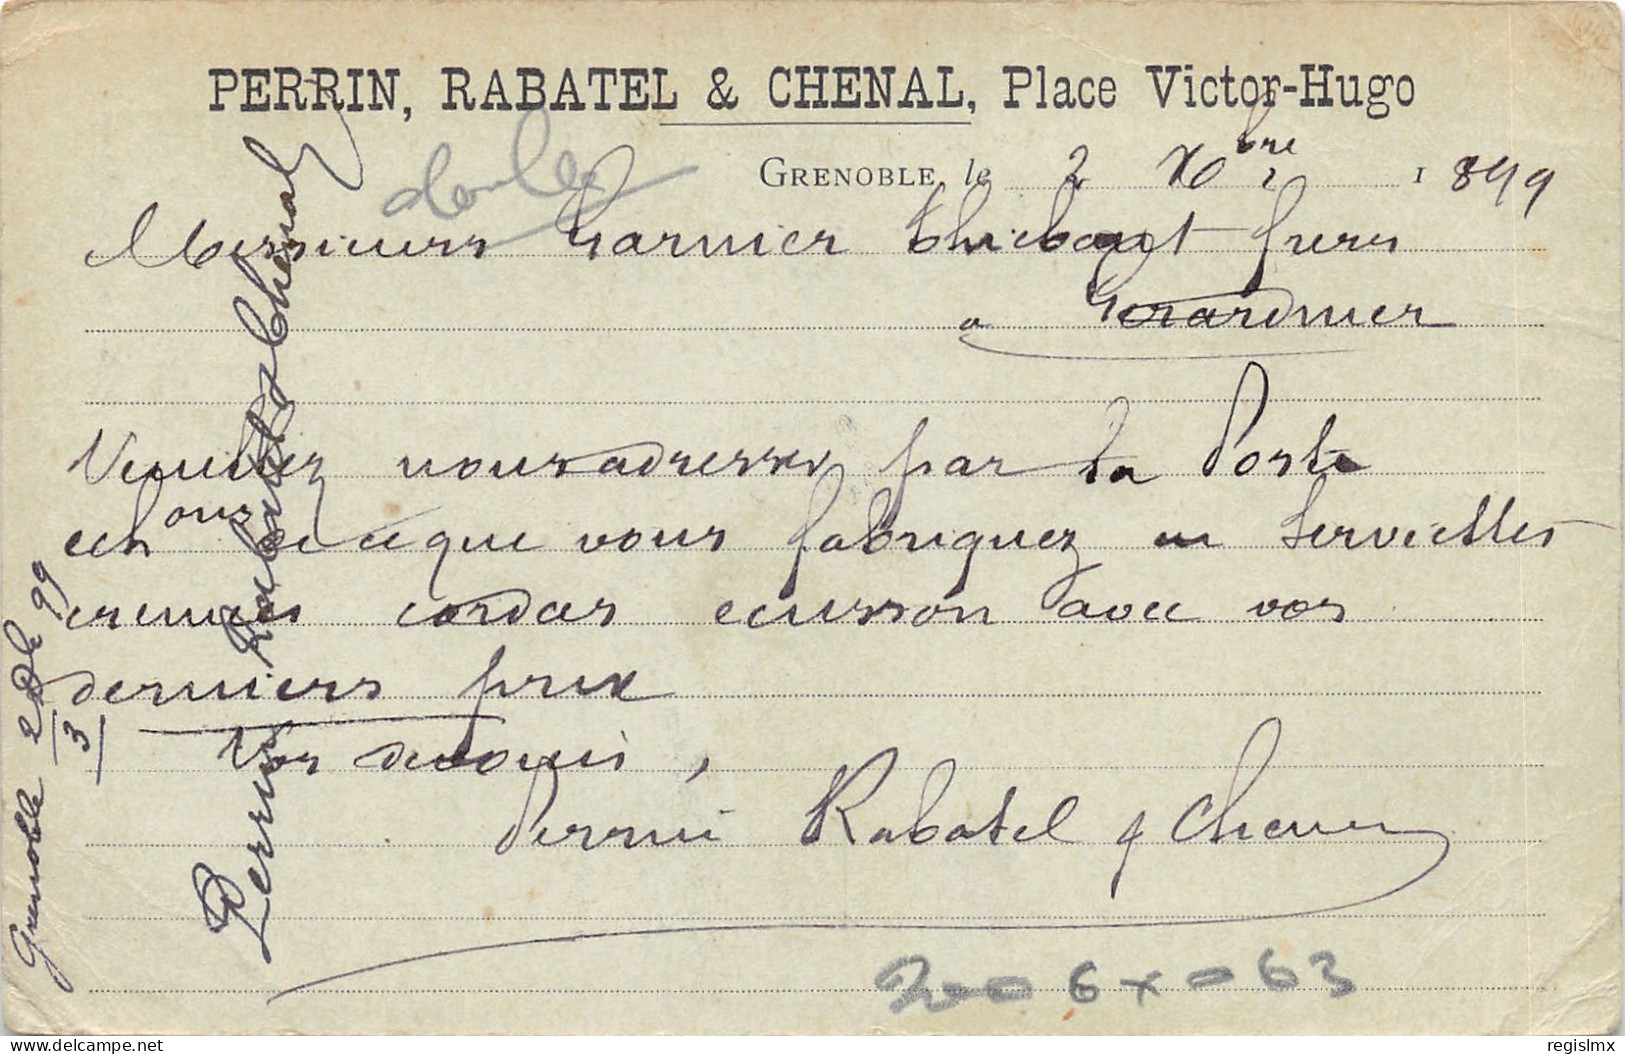 PERRIN, RABATEL & CHENAL, Place Victor-Hugo
GRENOBLE, le 2 Xbre 1899
Messieurs Garnier Thiebaut freres
a Gerardmer
Veuillez nous adresser par la Poste
echons de ce que vous fabriquez en Serviettes
cremes ecusson avec vos
derniers prix
Vos devoués,
Perrin Rabatel & Chenal
Perrin Rabatel & Chenal
Grenoble 2 Xbre 99
3
6 x 63
delcampe.net
regislmx